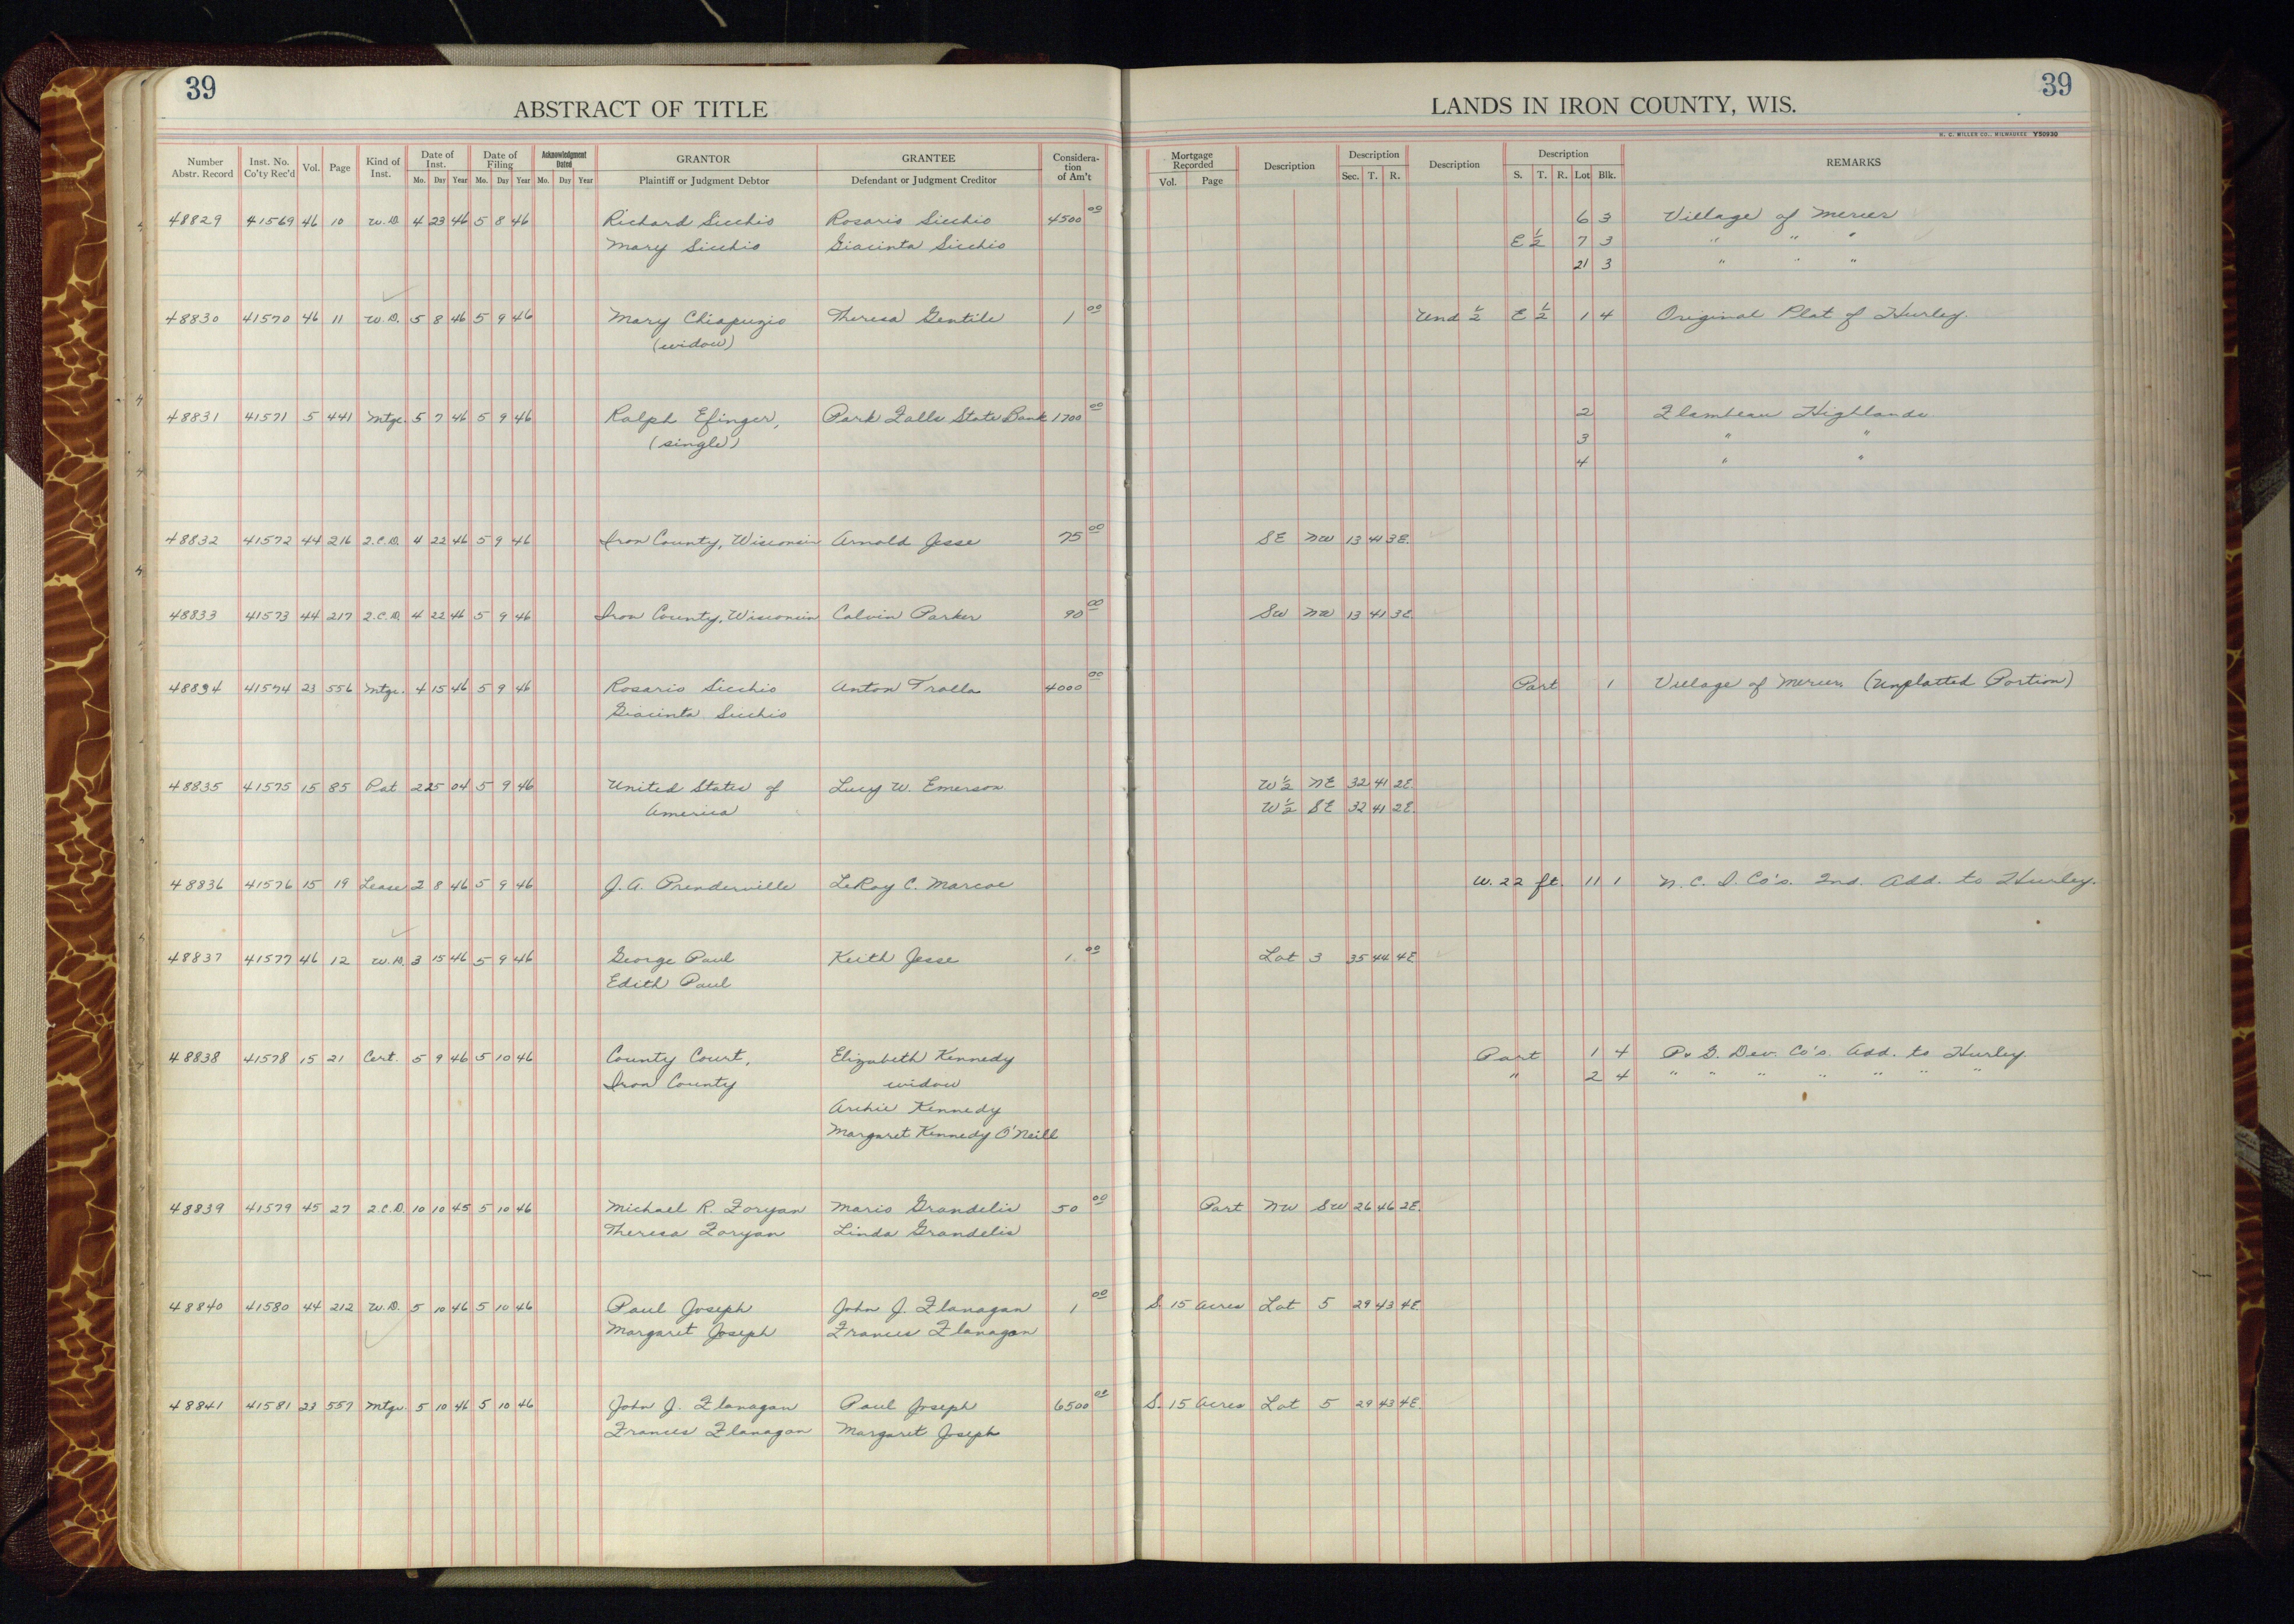 39
39
ABSTRACT OF TITLE
LANDS IN IRON COUNTY, WIS.
H. C. MILLER CO., MILWAUKEE Y50930
Number Abstr. Record | Inst. No. Co'ty Rec'd | Vol. | Page | Kind of Inst. | Date of Inst. Mo. Day Year | Date of Filing Mo. Day Year | Acknowledgment Dated Mo. Day Year | GRANTOR Plaintiff or Judgment Debtor | GRANTEE Defendant or Judgment Creditor | Consideration of Am't | Mortgage Recorded Vol. Page | Description | Description Sec. T. R. | Description | Description S. T. R. Lot Blk. | REMARKS
48829 41569 46 10 W.D. 4 23 46 5 8 46 Richard Sicchio Rosario Sicchio 4500 00 6 3 Village of Mercer
Mary Sicchio Giacinta Sicchio E 1/2 7 3 " " "
21 3 " " "
48830 41570 46 11 W.D. 5 8 46 5 9 46 Mary Chiapuzio Theresa Gentile 1 00 Und 1/2 E 1/2 1 4 Original Plat of Hurley.
(widow)
48831 41571 5 441 Mtge. 5 7 46 5 9 46 Ralph Efinger, Park Falls State Bank 1700 00 2 Flambeau Highlands
(single) 3 " "
4 " "
48832 41572 44 216 2.C.D. 4 22 46 5 9 46 Iron County, Wisconsin Arnold Jesse 75 00 SE NW 13 41 3E.
48833 41573 44 217 2.C.D. 4 22 46 5 9 46 Iron County, Wisconsin Calvin Parker 90 00 SW NW 13 41 3E.
48834 41574 23 556 Mtge. 4 15 46 5 9 46 Rosario Sicchio Anton Tralla 4000 00 Part 1 Village of Mercer (Unplatted Portion)
Giacinta Sicchio
48835 41575 15 85 Pat 2 25 04 5 9 46 United States of Lucy W. Emerson W 1/2 NE 32 41 2E.
America W 1/2 SE 32 41 2E.
48836 41576 15 19 Lease 2 8 46 5 9 46 J. A. Prenderville LeRoy C. Marcoe W. 22 ft. 11 1 N. C. I. Co's. 2nd. Add. to Hurley.
48837 41577 46 12 W.D. 3 15 46 5 9 46 George Paul Keith Jesse 1. 00 Lot 3 35 44 4E
Edith Paul
48838 41578 15 21 Cert. 5 9 46 5 10 46 County Court, Elizabeth Kennedy Part 1 4 P. & G. Dev. Co's. Add. to Hurley.
Iron County widow " 2 4 " " " " " " "
Archie Kennedy
Margaret Kennedy O'Neill
48839 41579 45 27 2.C.D. 10 10 45 5 10 46 Michael R. Foryan Mario Grandelis 50 00 Part NW SW 26 46 2E.
Theresa Foryan Linda Grandelis
48840 41580 44 212 W.D. 5 10 46 5 10 46 Paul Joseph John J. Flanagan 1 00 S. 15 Acres Lot 5 29 43 4E.
Margaret Joseph Frances Flanagan
48841 41581 23 557 Mtge. 5 10 46 5 10 46 John J. Flanagan Paul Joseph 6500 00 S. 15 Acres Lot 5 29 43 4E.
Frances Flanagan Margaret Joseph